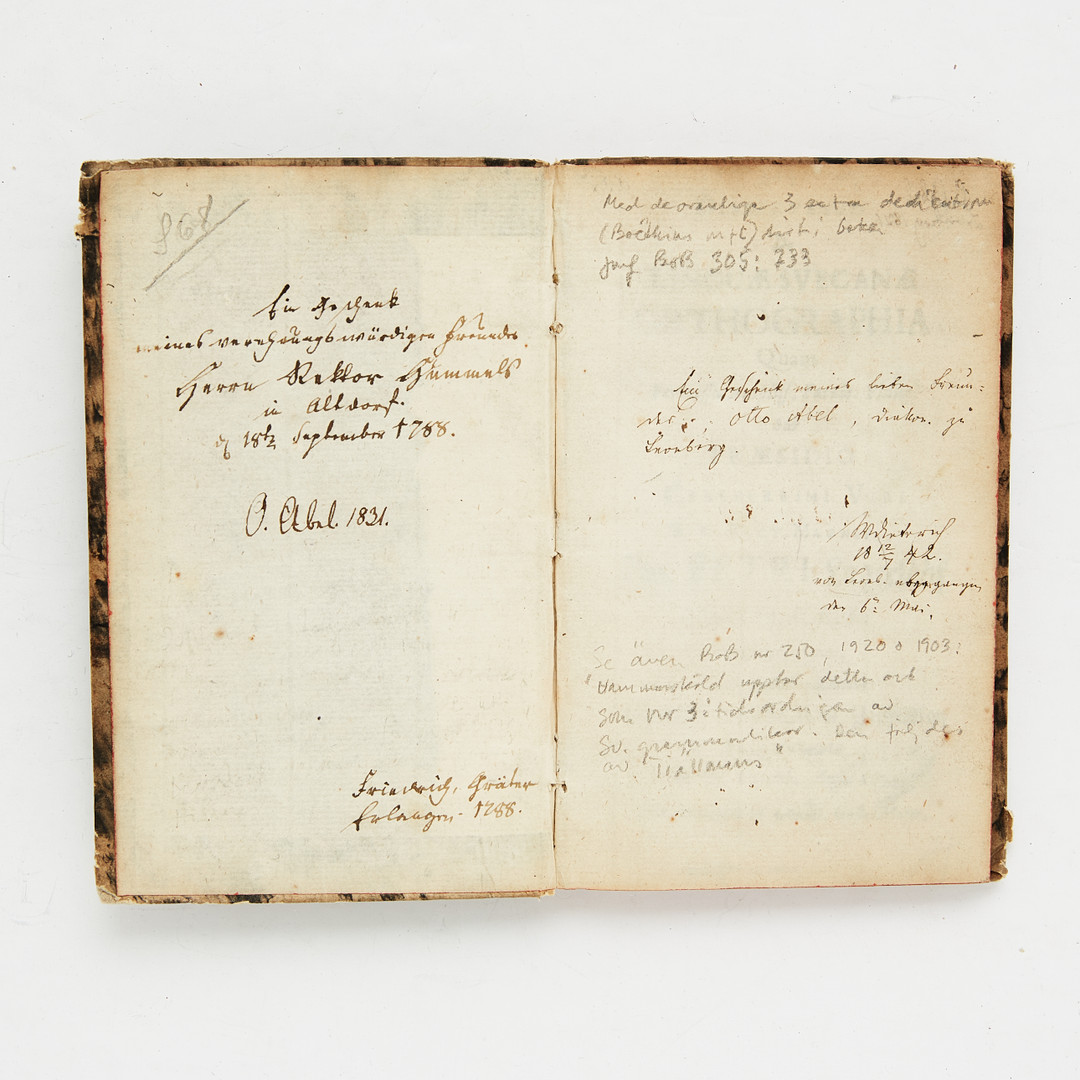 S 68
Ein Geschenk
meines verehrungswürdigen Freundes
Herrn Rektor Hummels
in Altdorf.
September 1788.
O. Abel. 1831.
Friedrich, Gräter
Erlangen. 1788.
Med de ovanliga 3 extra dedikationer
(Boëthius m fl) sist i boken
Jmf BoB 305: 733
Ein Geschenk meines lieben Freun-
des, Otto Abel, Diakon. zu
Leonberg.
WDieterich
18 12/7 42.
von Leonb. abgegangen
den 6. Mai.
Se även BoB nr 250, 1920 o 1903:
"Hammarsköld upptar detta arb
som nr 3 i tidsordningen av
Sv. grammatikor. Den följdes
av Tiällmanns"